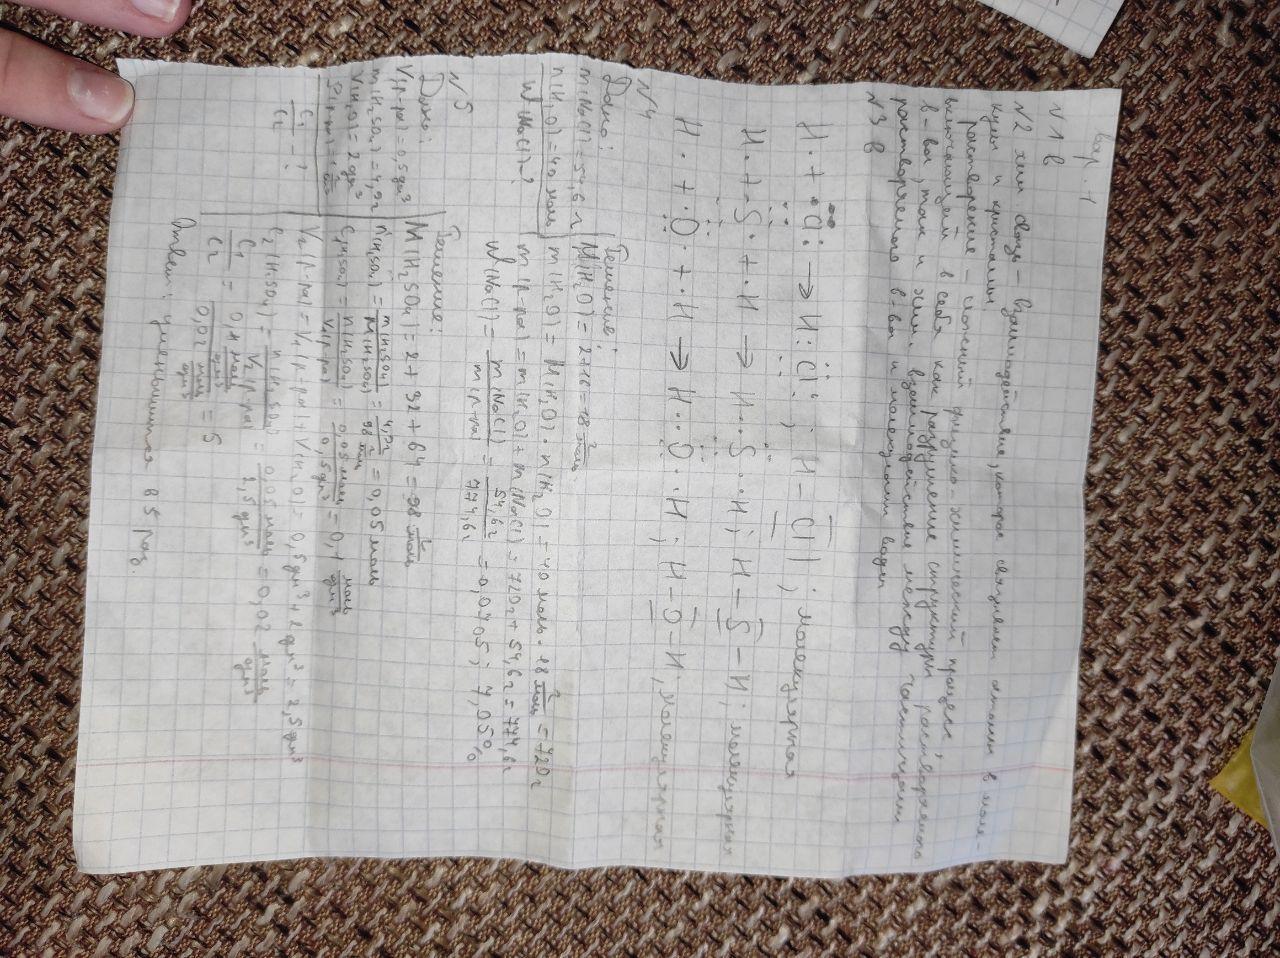 Вар. 1
N1 в
N2 хим связь – взаимодействие, которое связывает атомы в моле-
кулы и кристаллы.
Растворение – сложный физико-химический процесс,
включающий в себя как разрушение структуры растворяемого
в-ва, так и хим. взаимодействие между частицами
растворяемого в-ва и молекулами воды
N3 в
H· + ·Cl: → H:Cl: ; H – Cl| ; молекулярная
H· + ·S· + ·H → H··S··H; H – S – H; молекулярная
H· + ·O· + ·H → H··O··H; H – O – H; молекулярная
N4
Дано:
m(NaCl) = 54,6 г
n(H2O) = 40 моль
W(NaCl)-?
Решение:
M(H2O) = 2+16 = 18 г/моль
m(H2O) = M(H2O) · n(H2O) = 40 моль · 18 г/моль = 720 г
m(р-ра) = m(H2O) + m(NaCl) = 720г + 54,6г = 774,6г
W(NaCl) = m(NaCl)/m р-ра) = 54,6г/774,6г = 0,0705; 7,05%
N5
Дано:
V(р-ра) = 0,5 дм³
m(H2SO4) = 4,9г
V(H2O) = 2 дм³
C1/C2 - ?
Решение:
M(H2SO4) = 2 + 32 + 64 = 98 г/моль
n(H2SO4) = m(H2SO4)/M(H2SO4) = 4,9г/98 г/моль = 0,05 моль
C1(H2SO4) = n(H2SO4)/V1(р-ра) = 0,05 моль/0,5 дм³ = 0,1 моль/дм³
V2(р-ра) = V1(р-ра) + V(H2O) = 0,5 дм³ + 2 дм³ = 2,5 дм³
C2(H2SO4) = n(H2SO4)/V2(р-ра) = 0,05 моль/2,5 дм³ = 0,02 моль/дм³
C1/C2 = 0,1 моль/дм³/0,02 моль/дм³ = 5
Ответ: уменьшится в 5 раз.